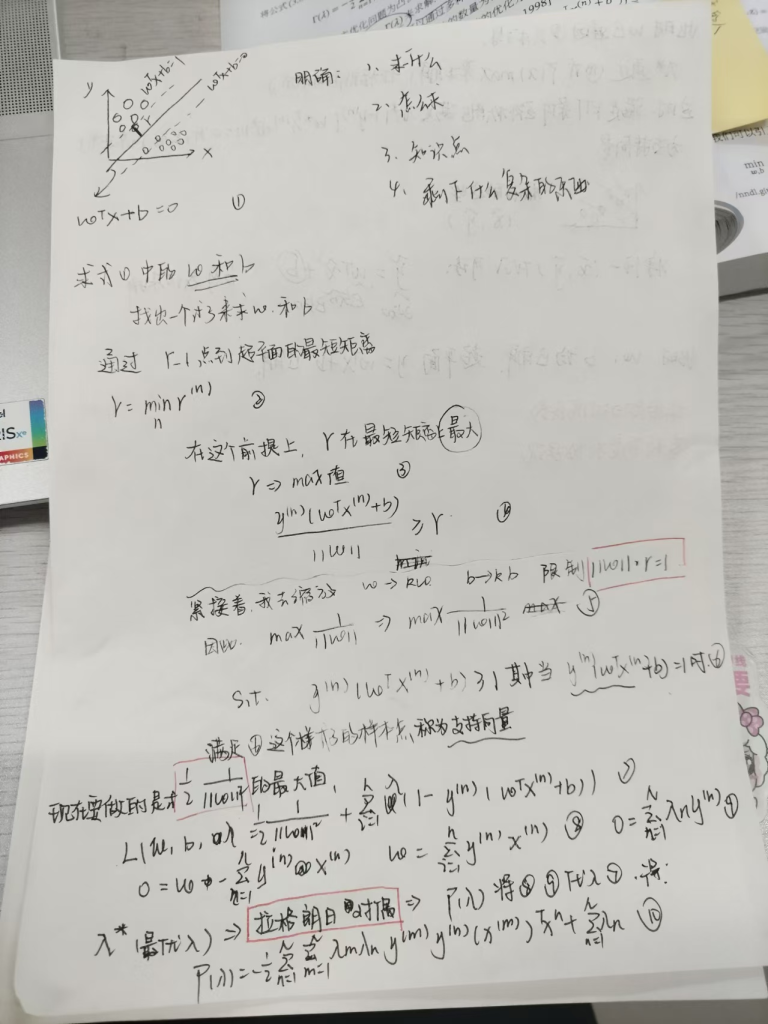 y
wᵀx+b=1
wᵀx+b=0
r
x
wᵀx+b=0 ①
明确: 1. 求什么
2. 怎么求
3. 知识点
4. 剩下什么复杂的东西
求式①中的 w 和 b
找出一个式子来求 w 和 b
通过 r→点到超平面的最短距离
r = min r⁽ⁿ⁾ ②
n
在这个前提上, r 在最短距离上最大
r ⇒ max值 ③
y⁽ⁿ⁾(wᵀx⁽ⁿ⁾+b)
‖w‖ ≥ r ④
紧接着,我去缩放 w→kw b→kb 限制 ‖w‖·r=1
因此 max 1/‖w‖ ⇒ max 1/‖w‖² ⑤
S.t. y⁽ⁿ⁾(wᵀx⁽ⁿ⁾+b)≥1 其中当 y⁽ⁿ⁾(wᵀx⁽ⁿ⁾+b)=1时 ⑥
满足 这个样子的样本点,称为支持向量
现在要做的是求 1/2 1/‖w‖² 的最大值,
L(w, b, λ) = 1/2 1/‖w‖² + Σ λ(1 - y⁽ⁿ⁾(wᵀx⁽ⁿ⁾+b)) ⑦
0 = w - Σ y⁽ⁿ⁾ x⁽ⁿ⁾ w = Σ y⁽ⁿ⁾ x⁽ⁿ⁾ ⑧ 0 = Σ λn y⁽ⁿ⁾ ⑨
λ* (最优λ) ⇒ 拉格朗日对偶 ⇒ P(λ) 将⑧⑨代入⑦. 得:
P(λ) = -1/2 Σ Σ λm λn y⁽ᵐ⁾ y⁽ⁿ⁾ (x⁽ᵐ⁾)ᵀ xⁿ + Σ λn ⑩